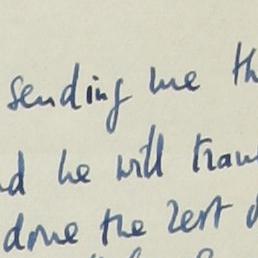 sending me th
nd he will tran
done the rest